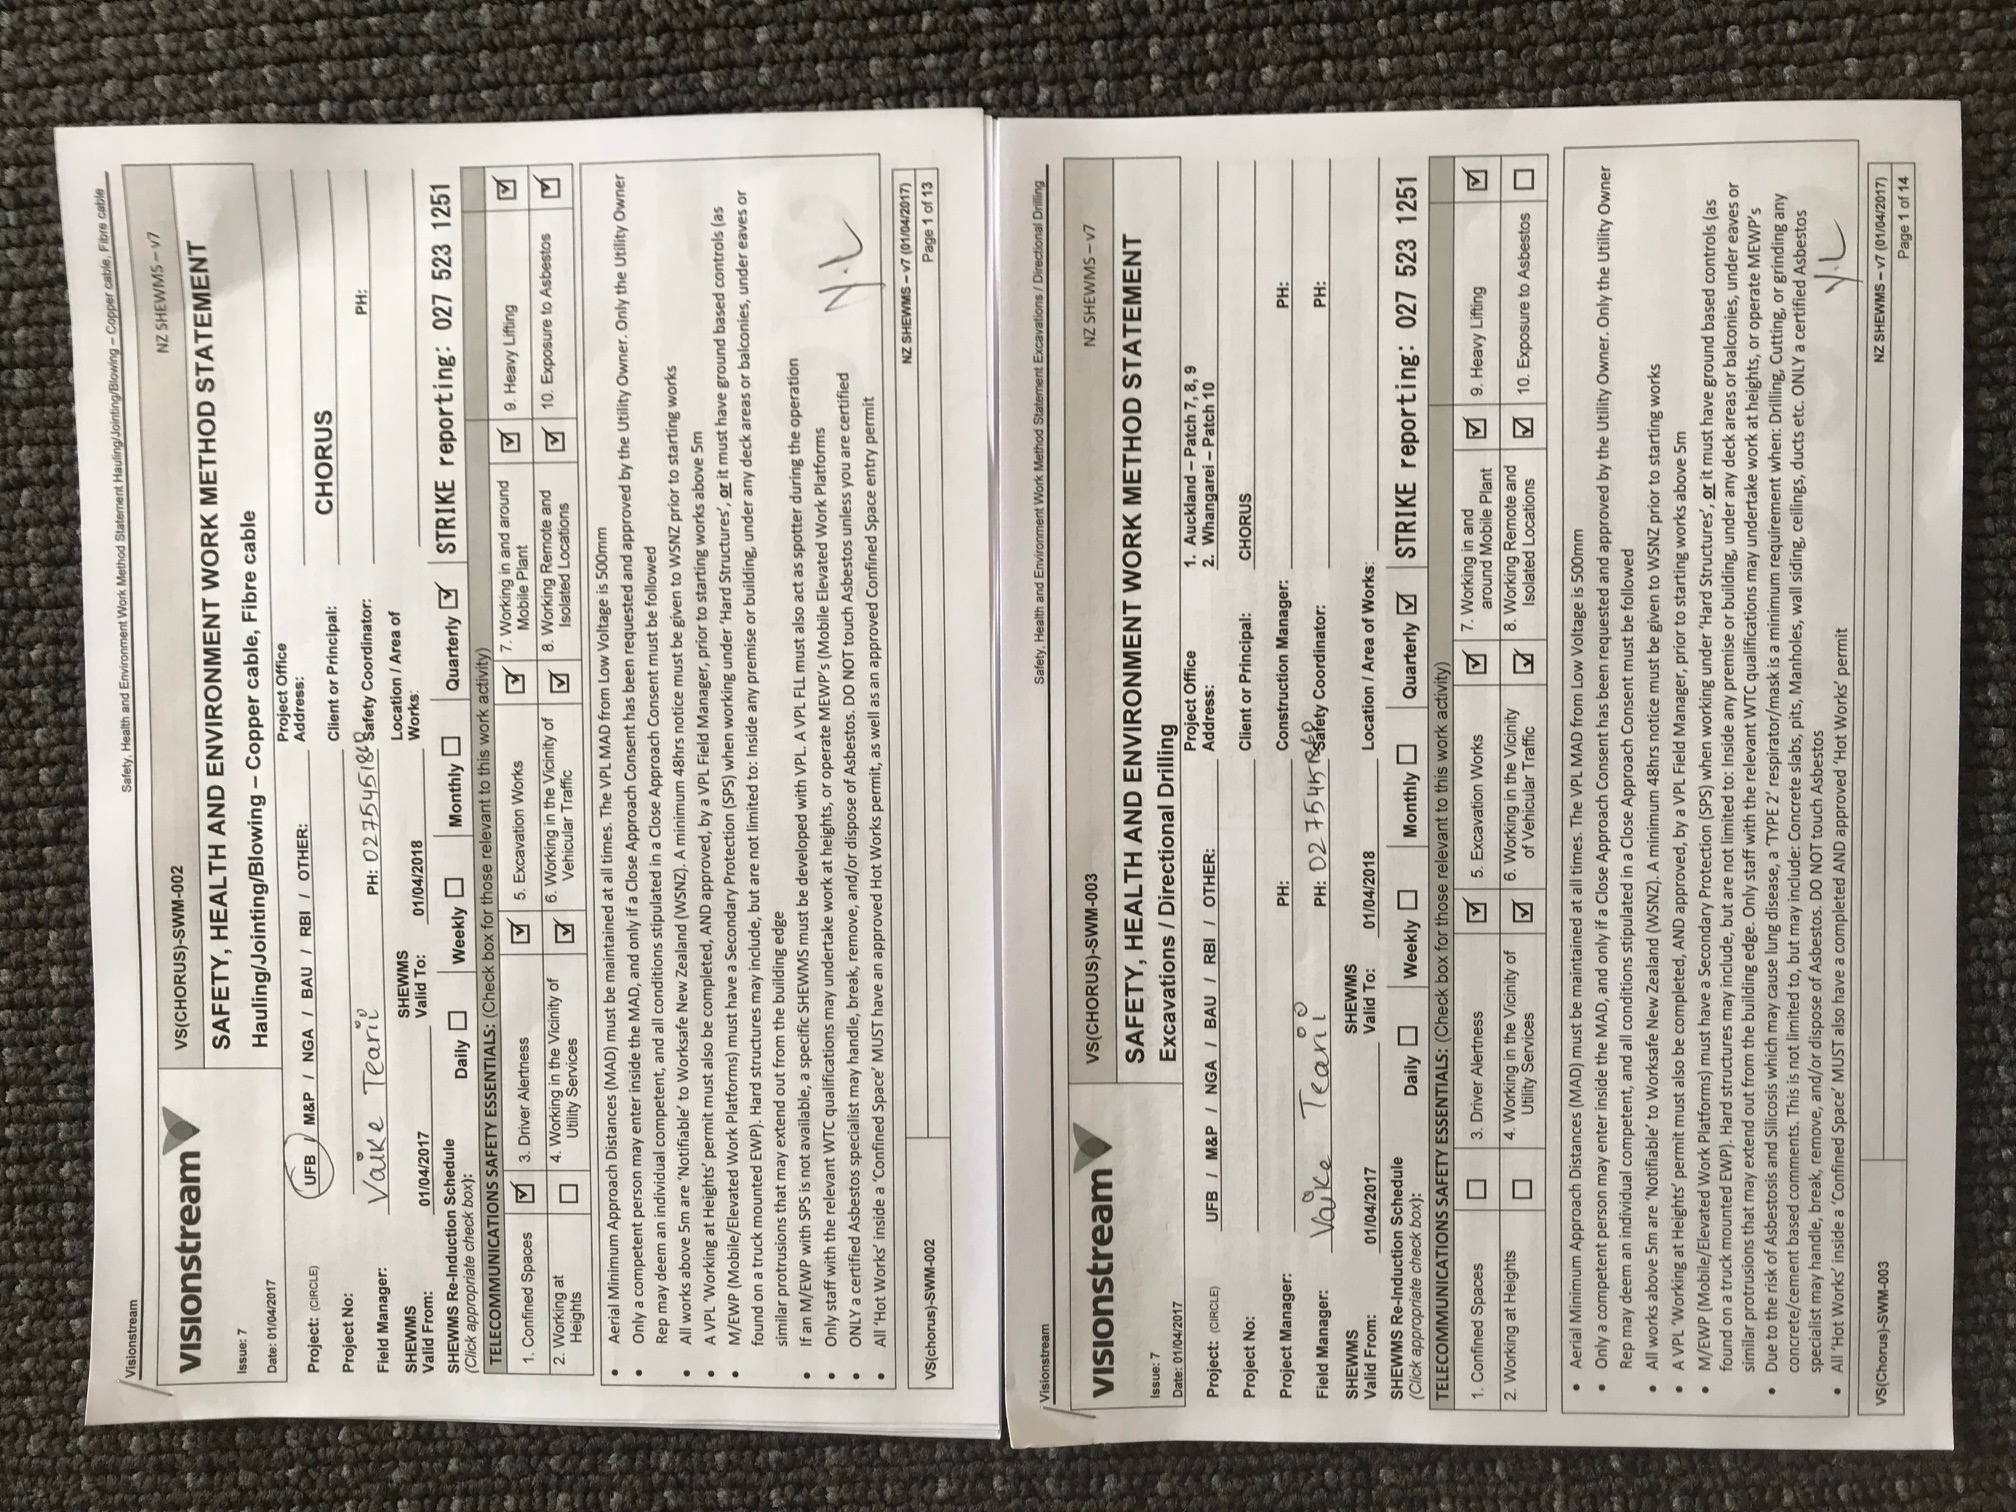 Visionstream
Safety, Health and Environment Work Method Statement Hauling/Jointing/Blowing – Copper cable, Fibre cable
VISIONstream
VS(CHORUS)-SWM-002
NZ SHEWMS – v7
SAFETY, HEALTH AND ENVIRONMENT WORK METHOD STATEMENT
Issue: 7
Hauling/Jointing/Blowing – Copper cable, Fibre cable
Date: 01/04/2017
Project: (CIRCLE) UFB / M&P / NGA / BAU / RBI / OTHER:
Project Office Address:
Project No:
Client or Principal: CHORUS
Field Manager: Vaike Tearii PH: 0275451860 Safety Coordinator: PH:
SHEWMS Valid From: 01/04/2017 SHEWMS Valid To: 01/04/2018 Location / Area of Works:
SHEWMS Re-Induction Schedule
(Click appropriate check box): Daily ☐ Weekly ☐ Monthly ☐ Quarterly ☑ STRIKE reporting: 027 523 1251
TELECOMMUNICATIONS SAFETY ESSENTIALS: (Check box for those relevant to this work activity)
1. Confined Spaces ☑ 3. Driver Alertness ☑ 5. Excavation Works ☑ 7. Working in and around Mobile Plant ☑ 9. Heavy Lifting ☑
2. Working at Heights ☐ 4. Working in the Vicinity of Utility Services ☑ 6. Working in the Vicinity of Vehicular Traffic ☑ 8. Working Remote and Isolated Locations ☑ 10. Exposure to Asbestos ☑
• Aerial Minimum Approach Distances (MAD) must be maintained at all times. The VPL MAD from Low Voltage is 500mm
• Only a competent person may enter inside the MAD, and only if a Close Approach Consent has been requested and approved by the Utility Owner. Only the Utility Owner
Rep may deem an individual competent, and all conditions stipulated in a Close Approach Consent must be followed
• All works above 5m are 'Notifiable' to Worksafe New Zealand (WSNZ). A minimum 48hrs notice must be given to WSNZ prior to starting works
• A VPL 'Working at Heights' permit must also be completed, AND approved, by a VPL Field Manager, prior to starting works above 5m
• M/EWP (Mobile/Elevated Work Platforms) must have a Secondary Protection (SPS) when working under 'Hard Structures', or it must have ground based controls (as
found on a truck mounted EWP). Hard structures may include, but are not limited to: Inside any premise or building, under any deck areas or balconies, under eaves or
similar protrusions that may extend out from the building edge
• If an M/EWP with SPS is not available, a specific SHEWMS must be developed with VPL. A VPL FLL must also act as spotter during the operation
• Only staff with the relevant WTC qualifications may undertake work at heights, or operate MEWP's (Mobile Elevated Work Platforms
• ONLY a certified Asbestos specialist may handle, break, remove, and/or dispose of Asbestos. DO NOT touch Asbestos unless you are certified
• All 'Hot Works' inside a 'Confined Space' MUST have an approved Hot Works permit, as well as an approved Confined Space entry permit
Y.L
NZ SHEWMS – v7 (01/04/2017)
VS(chorus)-SWM-002
Page 1 of 13
Visionstream
Safety, Health and Environment Work Method Statement Excavations / Directional Drilling
VISIONstream
VS(CHORUS)-SWM-003
NZ SHEWMS – v7
SAFETY, HEALTH AND ENVIRONMENT WORK METHOD STATEMENT
Issue: 7
Excavations / Directional Drilling
Date: 01/04/2017
Project: (CIRCLE) UFB / M&P / NGA / BAU / RBI / OTHER:
Project Office Address: 1. Auckland – Patch 7, 8, 9
2. Whangarei – Patch 10
Project No:
Client or Principal: CHORUS
Project Manager: PH: Construction Manager: PH:
Field Manager: Vaike Tearii PH: 0275451860 Safety Coordinator: PH:
SHEWMS Valid From: 01/04/2017 SHEWMS Valid To: 01/04/2018 Location / Area of Works:
SHEWMS Re-Induction Schedule
(Click appropriate check box): Daily ☐ Weekly ☐ Monthly ☐ Quarterly ☑ STRIKE reporting: 027 523 1251
TELECOMMUNICATIONS SAFETY ESSENTIALS: (Check box for those relevant to this work activity)
1. Confined Spaces ☐ 3. Driver Alertness ☑ 5. Excavation Works ☑ 7. Working in and around Mobile Plant ☑ 9. Heavy Lifting ☑
2. Working at Heights ☐ 4. Working in the Vicinity of Utility Services ☑ 6. Working in the Vicinity of Vehicular Traffic ☑ 8. Working Remote and Isolated Locations ☑ 10. Exposure to Asbestos ☐
• Aerial Minimum Approach Distances (MAD) must be maintained at all times. The VPL MAD from Low Voltage is 500mm
• Only a competent person may enter inside the MAD, and only if a Close Approach Consent has been requested and approved by the Utility Owner. Only the Utility Owner
Rep may deem an individual competent, and all conditions stipulated in a Close Approach Consent must be followed
• All works above 5m are 'Notifiable' to Worksafe New Zealand (WSNZ). A minimum 48hrs notice must be given to WSNZ prior to starting works
• A VPL 'Working at Heights' permit must also be completed, AND approved, by a VPL Field Manager, prior to starting works above 5m
• M/EWP (Mobile/Elevated Work Platforms) must have a Secondary Protection (SPS) when working under 'Hard Structures', or it must have ground based controls (as
found on a truck mounted EWP). Hard structures may include, but are not limited to: Inside any premise or building, under any deck areas or balconies, under eaves or
similar protrusions that may extend out from the building edge. Only staff with the relevant WTC qualifications may undertake work at heights, or operate MEWP's
• Due to the risk of Asbestosis and Silicosis which may cause lung disease, a 'TYPE 2' respirator/mask is a minimum requirement when: Drilling, Cutting, or grinding any
concrete/cement based comments. This is not limited to, but may include: Concrete slabs, pits, Manholes, wall siding, ceilings, ducts etc. ONLY a certified Asbestos
specialist may handle, break, remove, and/or dispose of Asbestos. DO NOT touch Asbestos
• All 'Hot Works' inside a 'Confined Space' MUST also have a completed AND approved 'Hot Works' permit
Y.L
VS(Chorus)-SWM-003
NZ SHEWMS – v7 (01/04/2017)
Page 1 of 14